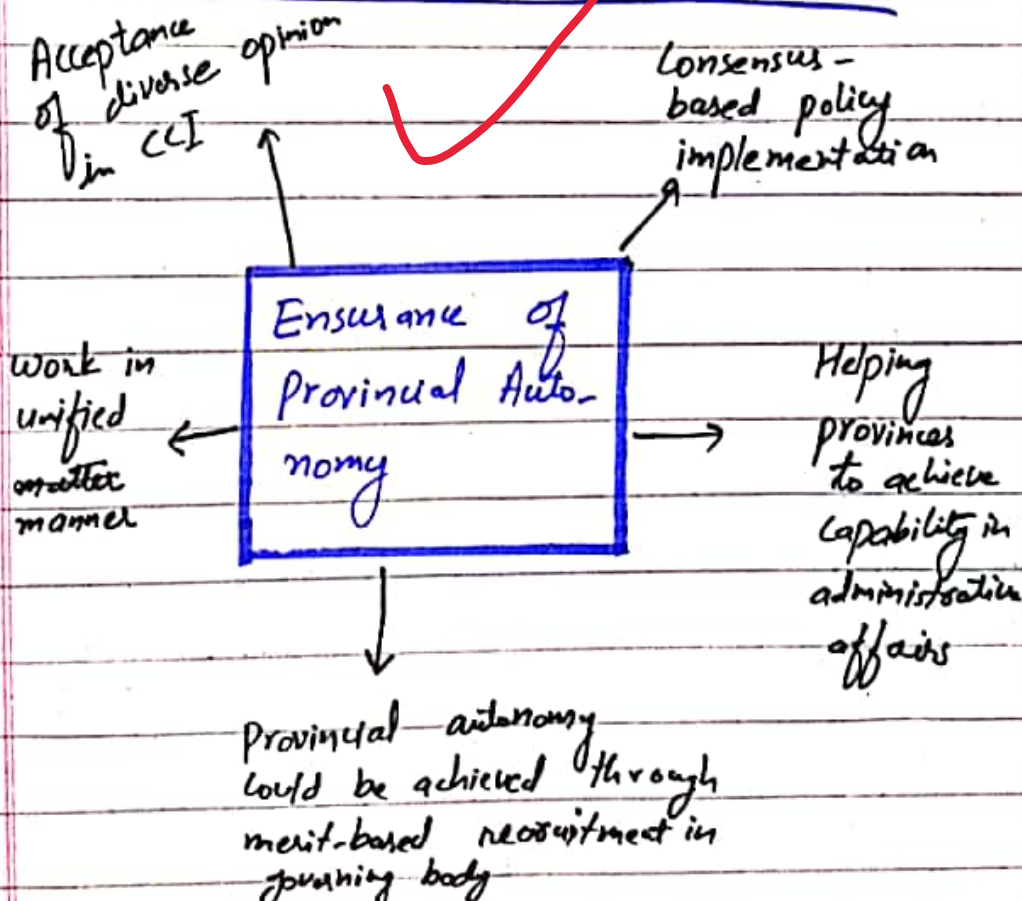 Acceptance
of diverse opinion
in CCI
Consensus-
based policy
implementation
Ensurance of
Provincial Auto-
nomy
Work in
unified
matter
manner
Helping
provinces
to achieve
capability in
administrative
affairs
Provincial autonomy
could be achieved through
merit-based recruitment in
governing body